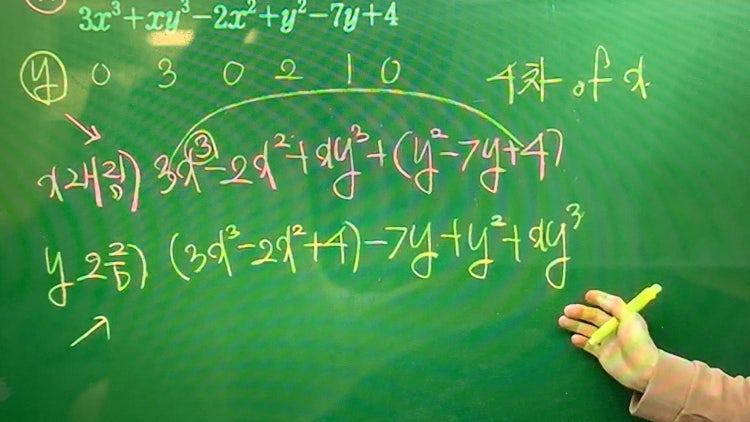 3x³+xy³-2x²+y²-7y+4
y 0 3 0 2 1 0 4차 of x
x 3x³-2x²+xy³+(y²-7y+4)
y (3x³-2x²+4)-7y+y²+xy³